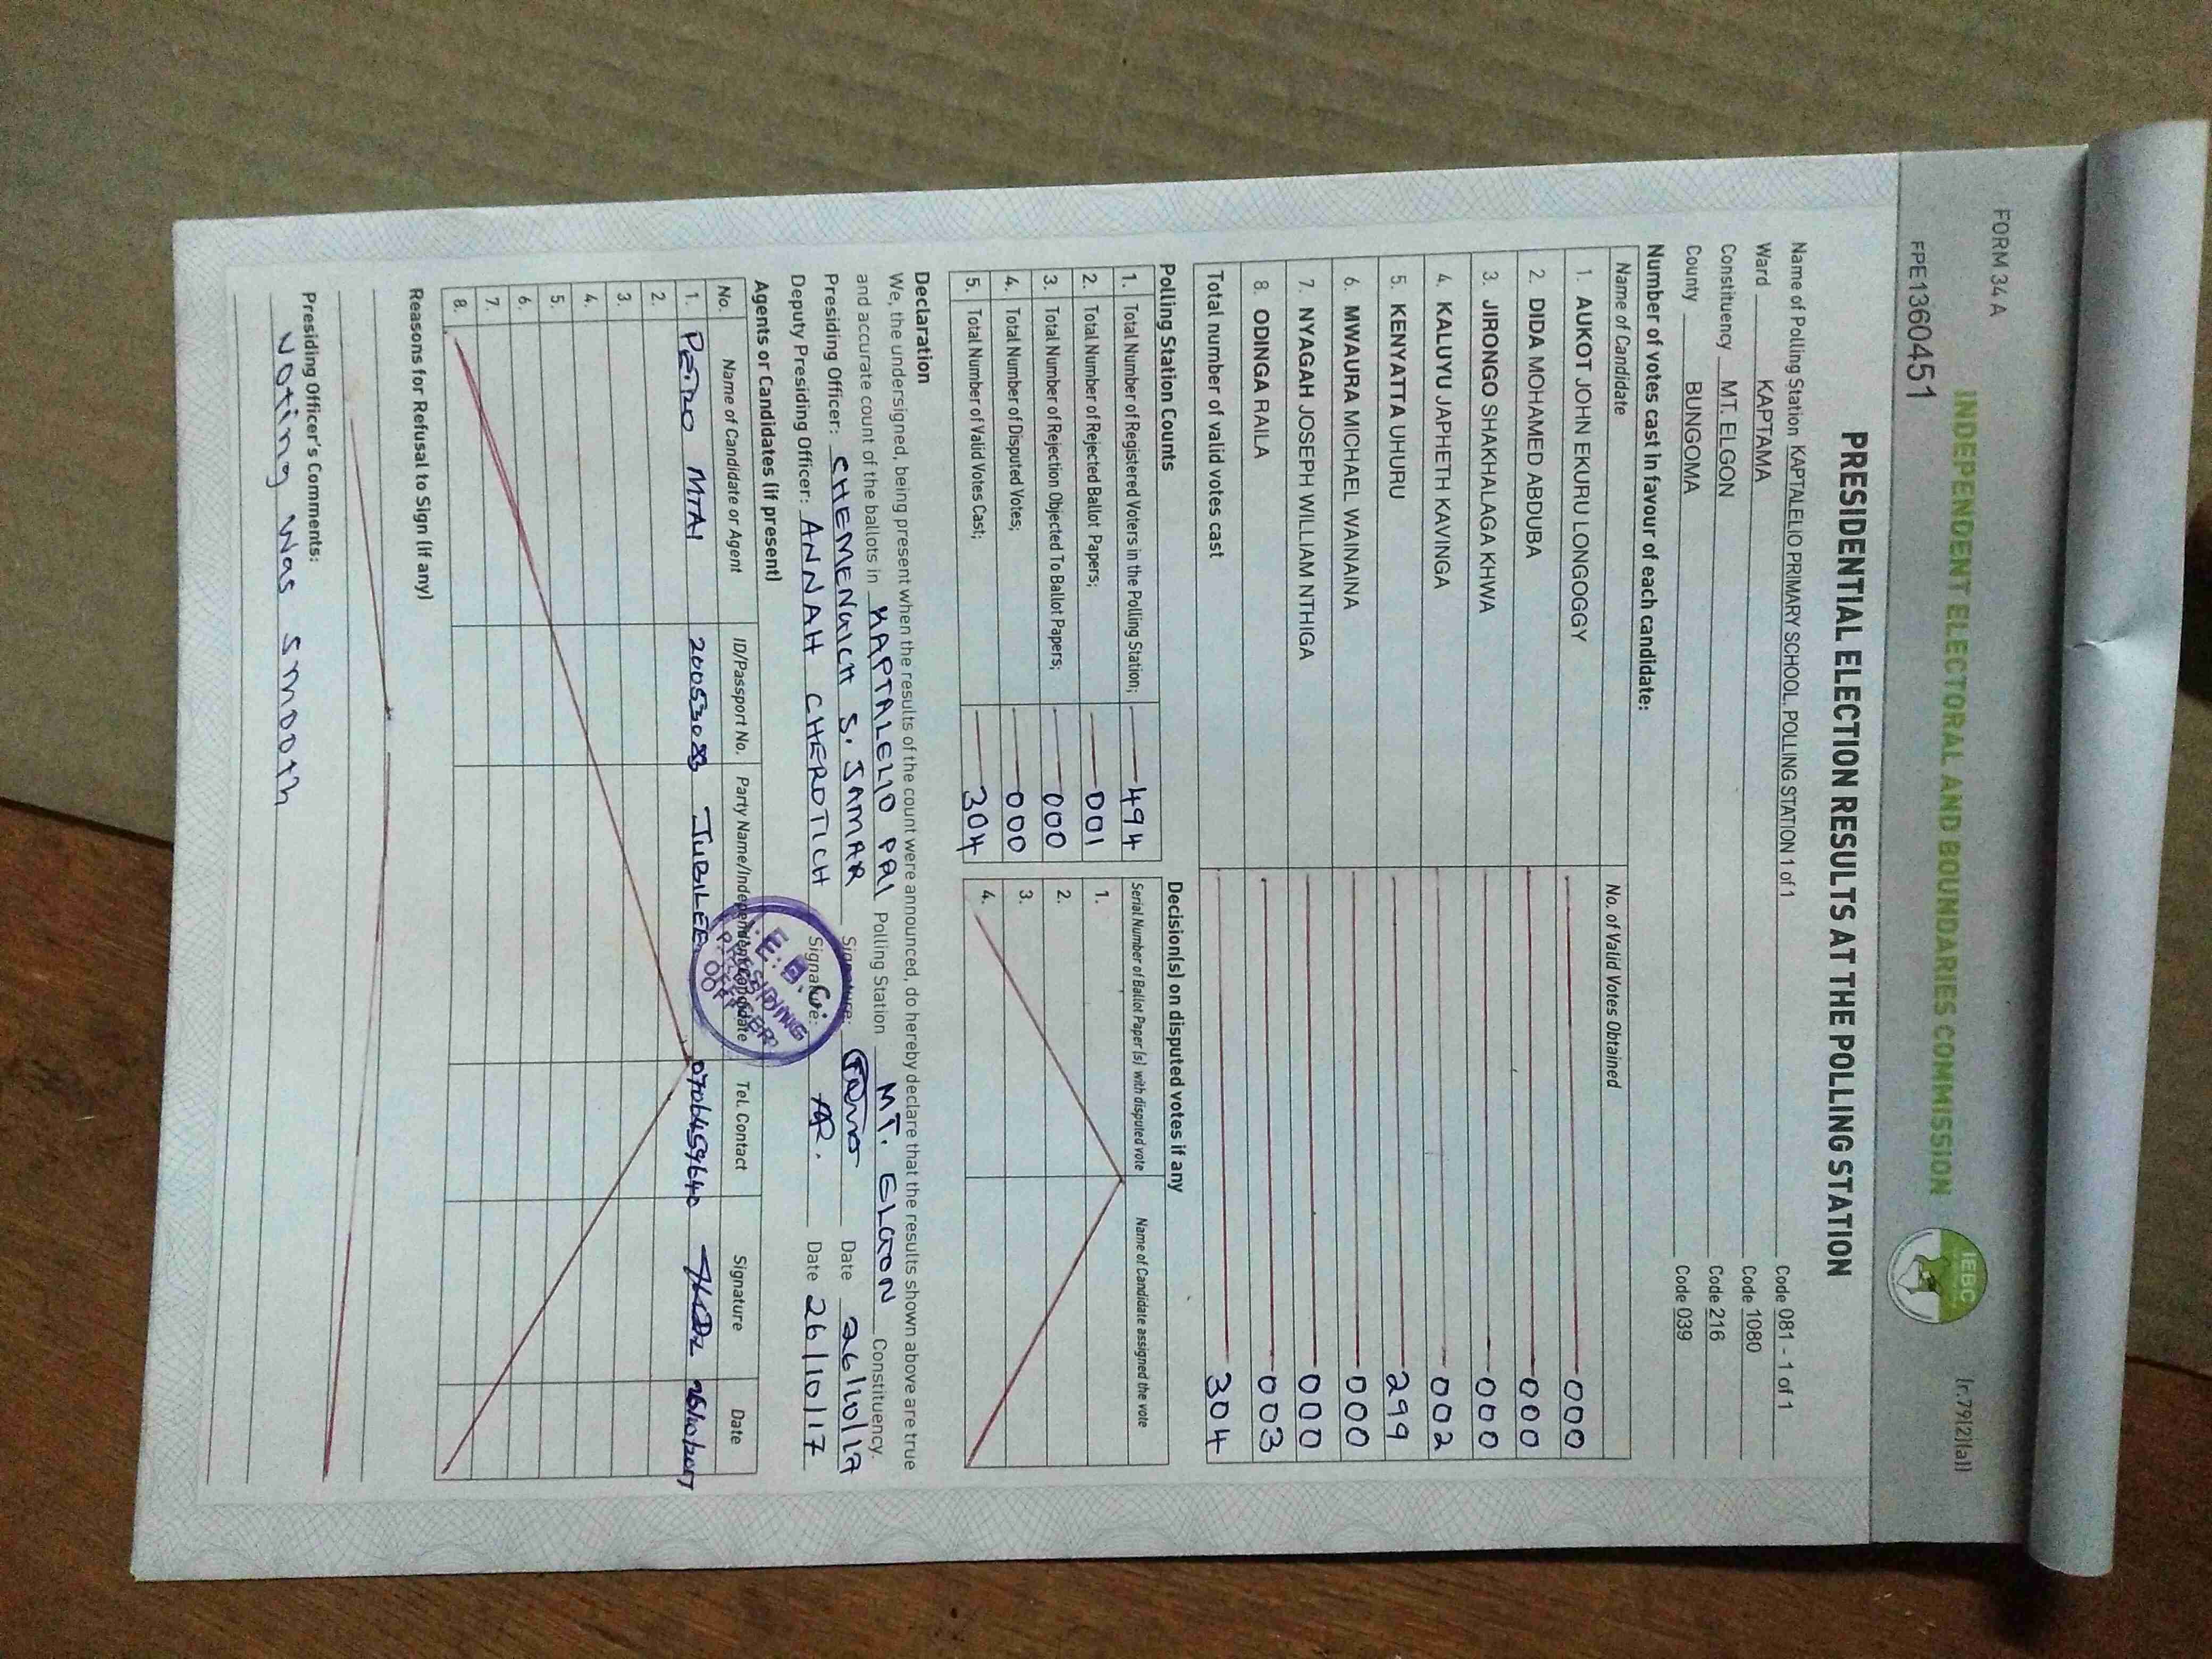 FORM 34 A
[r.79(2)(a)]
INDEPENDENT ELECTORAL AND BOUNDARIES COMMISSION
IEBC
FPE1360451
PRESIDENTIAL ELECTION RESULTS AT THE POLLING STATION
Name of Polling Station KAPTALELIO PRIMARY SCHOOL, POLLING STATION 1 of 1 Code 081 - 1 of 1
Ward KAPTAMA Code 1080
Constituency MT. ELGON Code 216
County BUNGOMA Code 039
Number of votes cast in favour of each candidate:
Name of Candidate No. of Valid Votes Obtained
1. AUKOT JOHN EKURU LONGOGGY 000
2. DIDA MOHAMED ABDUBA 000
3. JIRONGO SHAKHALAGA KHWA 000
4. KALUYU JAPHETH KAVINGA 002
5. KENYATTA UHURU 299
6. MWAURA MICHAEL WAINAINA 000
7. NYAGAH JOSEPH WILLIAM NTHIGA 000
8. ODINGA RAILA 003
Total number of valid votes cast 304
Polling Station Counts
1. Total Number of Registered Voters in the Polling Station; 494
2. Total Number of Rejected Ballot Papers; 001
3. Total Number of Rejection Objected To Ballot Papers; 000
4. Total Number of Disputed Votes; 000
5. Total Number of Valid Votes Cast; 304
Decision(s) on disputed votes if any
Serial Number of Ballot Paper (s) with disputed vote Name of Candidate assigned the vote
1.
2.
3.
4.
Declaration
We, the undersigned, being present when the results of the count were announced, do hereby declare that the results shown above are true
and accurate count of the ballots in KAPTALELIO PRI Polling Station MT. ELGON Constituency.
Presiding Officer: CHEMENGICH S. JAMAR Signature: Date 26/10/17
Deputy Presiding Officer: ANNAH CHEROTICH Signature: Date 26/10/17
I.E.B.C.
PRESIDING
OFFICER
Agents or Candidates (if present)
No. Name of Candidate or Agent ID/Passport No. Party Name/Independent Candidate Tel. Contact Signature Date
1. PETRO MTAI JUBILEE 0706459640 26/10/2017
2.
3.
4.
5.
6.
7.
8.
Reasons for Refusal to Sign (if any)
Presiding Officer's Comments:
Voting was smooth